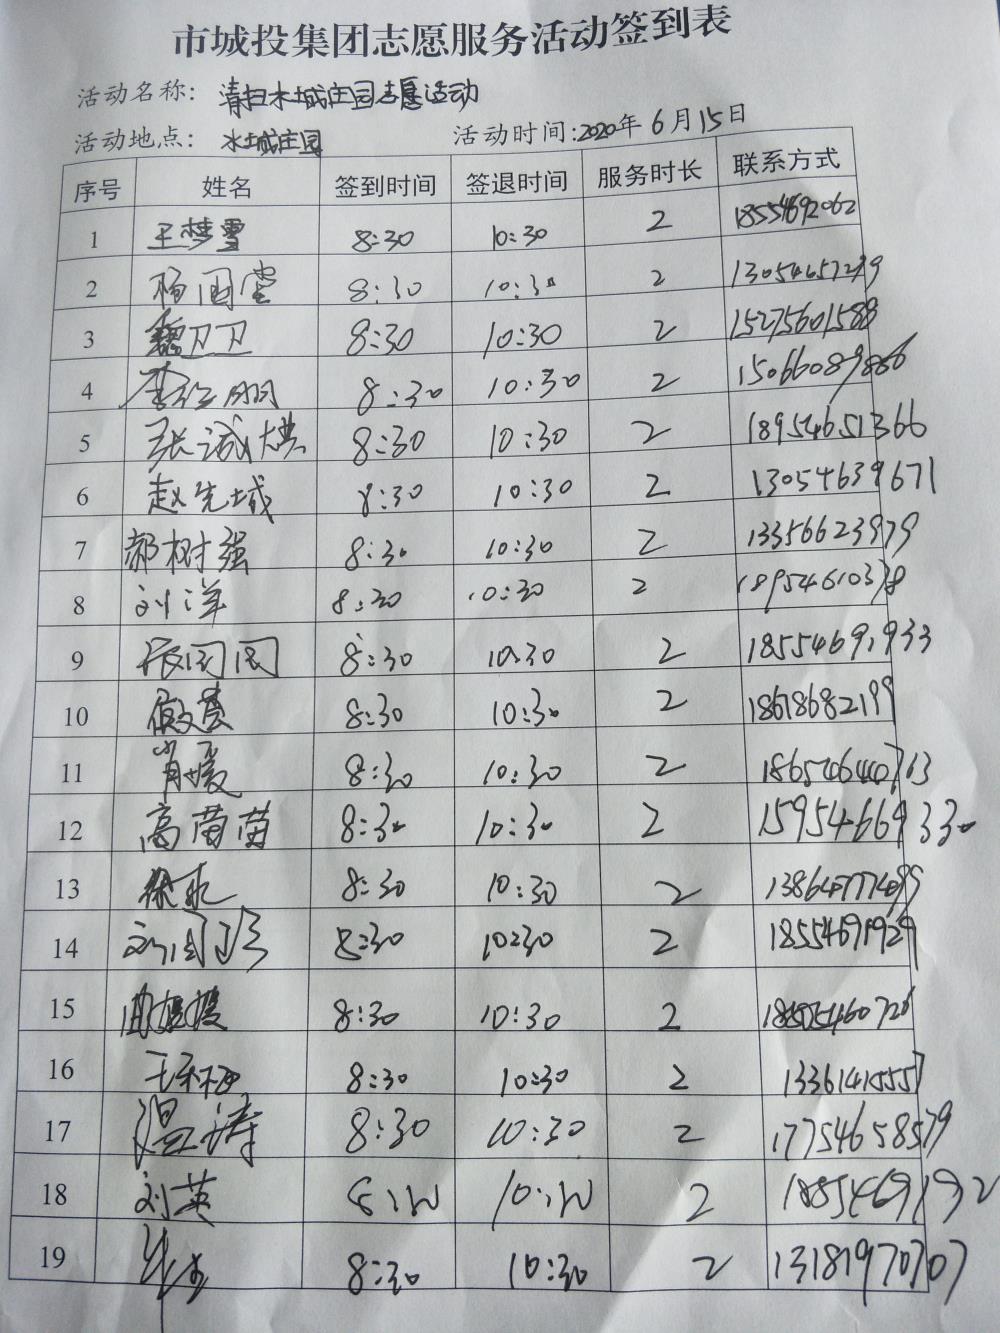 市城投集团志愿服务活动签到表
活动名称: 清扫水城庄园志愿活动
活动地点: 水城庄园 活动时间:2020年6月15日
序号 姓名 签到时间 签退时间 服务时长 联系方式
1 王梦雪 8:30 10:30 2 18554692062
2 杨国堂 8:30 10:30 2 13054657299
3 魏卫卫 8:30 10:30 2 15275601588
4 8:30 10:30 2 15066089886
5 张诚 8:30 10:30 2 18954651366
6 赵先城 8:30 10:30 2 13054639671
7 郝树强 8:30 10:30 2 13356623979
8 刘洋 8:30 10:30 2 18954610338
9 8:30 10:30 2 18554691933
10 8:30 10:30 2 18618682199
11 肖媛 8:30 10:30 2 18654644763
12 高苗苗 8:30 10:30 2 15954669330
13 徐永 8:30 10:30 2
14 8:30 10:30 2 18554691929
15 8:30 10:30 2
16 8:30 10:30 2 13361415557
17 温涛 8:30 10:30 2 17754658579
18 刘英 8:30 10:30 2
19 8:30 10:30 2 13181970707